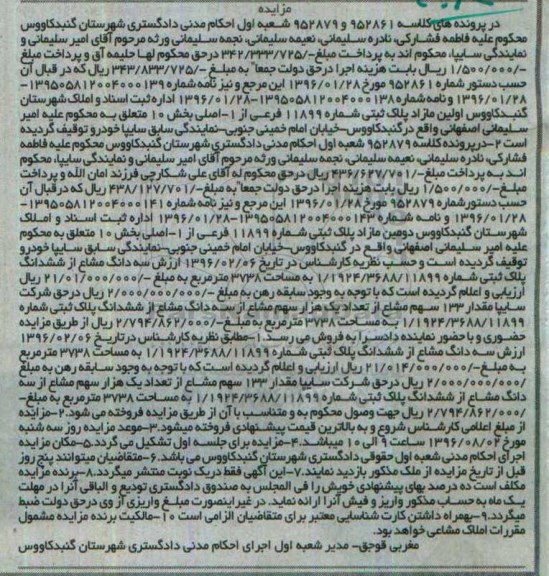 مزایده
در پرونده های کلاسه ۹۵۲۸۶۱ و ۹۵۲۸۷۹ شعبه اول احکام مدنی دادگستری شهرستان گنبدکاووس
محکوم علیه فاطمه فشارکی، نادره سلیمانی، نعیمه سلیمانی، نجمه سلیمانی ورثه مرحوم آقای امیر سلیمانی و
نمایندگی سایپا، محکوم اند به پرداخت مبلغ-/۳۴۲/۳۳۳/۷۲۵ درحق محکوم لها حلیمه آق و پرداخت مبلغ
-/۱/۵۰۰/۰۰۰ ریال بابت هزینه اجرا درحق دولت جمعا" به مبلغ -/۳۴۳/۸۳۳/۷۲۵ ریال که در قبال آن
حسب دستور شماره ۹۵۲۸۶۱ مورخ ۱۳۹۶/۰۱/۲۸ این مرجع و نیز نامه شماره ۱۳۹۵۰۵۸۱۲۰۰۴۰۰۰۱۳۹-
۱۳۹۶/۰۱/۲۸ و نامه شماره ۱۳۹۵۰۵۸۱۲۰۰۴۰۰۰۱۳۸-۱۳۹۶/۰۱/۲۸ اداره ثبت اسناد و املاک شهرستان
گنبدکاووس اولین مازاد پلاک ثبتی شماره ۱۱۸۹۹ فرعی از ۱-اصلی بخش ۱۰ متعلق به محکوم علیه امیر
سلیمانی اصفهانی واقع در گنبدکاووس-خیابان امام خمینی جنوبی-نمایندگی سابق سایپا خودرو توقیف گردیده
است ۲-درپرونده کلاسه ۹۵۲۸۷۹ شعبه اول احکام مدنی دادگستری شهرستان گنبدکاووس محکوم علیه فاطمه
فشارکی، نادره سلیمانی، نعیمه سلیمانی، نجمه سلیمانی ورثه مرحوم آقای امیر سلیمانی و نمایندگی سایپا، محکوم
اند به پرداخت مبلغ-/۴۳۶/۶۲۷/۷۰۱ ریال درحق محکوم له آقای علی شکارچی فرزند امان الله و پرداخت
مبلغ-/۱/۵۰۰/۰۰۰ ریال بابت هزینه اجرا درحق دولت جمعا" به مبلغ-/۴۳۸/۱۲۷/۷۰۱ ریال که درقبال آن
حسب دستور شماره ۹۵۲۸۷۹ مورخ ۱۳۹۶/۰۱/۲۸ این مرجع و نیز نامه شماره ۱۳۹۵۰۵۸۱۲۰۰۴۰۰۰۱۴۱-
۱۳۹۶/۰۱/۲۸ و نامه شماره ۱۳۹۵۰۵۸۱۲۰۰۴۰۰۰۱۴۳-۱۳۹۶/۰۱/۲۸ اداره ثبت اسناد و املاک
شهرستان گنبدکاووس دومین مازاد پلاک ثبتی شماره ۱۱۸۹۹ فرعی از ۱-اصلی بخش ۱۰ متعلق به محکوم
علیه امیر سلیمانی اصفهانی واقع در گنبدکاووس-خیابان امام خمینی جنوبی-نمایندگی سابق سایپا خودرو
توقیف گردیده است و حسب نظریه کارشناس در تاریخ ۱۳۹۶/۰۲/۰۶ ارزش سه دانگ مشاع از ششدانگ
پلاک ثبتی شماره ۱/۱۹۲۴/۳۶۸۸/۱۱۸۹۹ به مساحت ۳۷۳۸ مترمربع به مبلغ -/۲۱/۰۱۴/۰۰۰/۰۰۰ ریال
ارزیابی و اعلام گردیده است که با توجه به وجود سابقه رهن به مبلغ -/۲/۰۰۰/۰۰۰/۰۰۰ ریال درحق شرکت
سایپا مقدار ۱۳۳ سهم مشاع از تعداد یک هزار سهم مشاع از سه دانگ مشاع از ششدانگ پلاک ثبتی شماره
۱/۱۹۲۴/۳۶۸۸/۱۱۸۹۹ به مساحت ۳۷۳۸ مترمربع به مبلغ-/۲/۷۹۴/۸۶۲/۰۰۰ ریال از طریق مزایده
حضوری و با حضور نماینده دادسرا به فروش می رسد. ۱-مطابق نظریه کارشناس در تاریخ ۱۳۹۶/۰۲/۰۶
ارزش سه دانگ مشاع از ششدانگ پلاک ثبتی شماره ۱/۱۹۲۴/۳۶۸۸/۱۱۸۹۹ به مساحت ۳۷۳۸ مترمربع
به مبلغ-/۲۱/۰۱۴/۰۰۰/۰۰۰ ریال ارزیابی و اعلام گردیده است که با توجه به وجود سابقه رهن به مبلغ
-/۲/۰۰۰/۰۰۰/۰۰۰ ریال درحق شرکت سایپا مقدار ۱۳۳ سهم مشاع از تعداد یک هزار سهم مشاع از سه
دانگ مشاع از ششدانگ پلاک ثبتی شماره ۱/۱۹۲۴/۳۶۸۸/۱۱۸۹۹ به مساحت ۳۷۳۸ مترمربع به مبلغ-
/۲/۷۹۴/۸۶۲/۰۰۰ ریال جهت وصول محکوم به و متناسب با آن از طریق مزایده فروخته می شود. ۲-مزایده
از مبلغ اعلامی کارشناس شروع و به بالاترین قیمت پیشنهادی فروخته میشود. ۳-موعد مزایده روز سه شنبه
مورخ ۱۳۹۶/۰۸/۰۲ ساعت ۹ الی ۱۰ میباشد. ۴-مزایده برای جلسه اول تشکیل می گردد. ۵-مکان مزایده
اجرای احکام مدنی شعبه اول حقوقی دادگستری شهرستان گنبدکاووس می باشد. ۶-متقاضیان میتوانند پنج روز
قبل از تاریخ مزایده از ملک مذکور بازدید نمایند. ۷-این آگهی فقط دریک نوبت منتشر میگردد. ۸-برنده مزایده
مکلف است ده درصد بهای پیشنهادی خویش را فی المجلس به صندوق دادگستری تودیع و الباقی آنرا در مهلت
یک ماه به حساب مذکور واریز و فیش آنرا ارائه نماید. در غیر اینصورت مبلغ واریزی از وی درحق دولت ضبط
میگردد. ۹-بهمراه داشتن کارت شناسایی معتبر برای متقاضیان الزامی است ۱۰-مالکیت برنده مزایده مشمول
مقررات املاک مشاعی خواهد بود.
مغربی قوجق- مدیر شعبه اول اجرای احکام مدنی دادگستری شهرستان گنبدکاووس